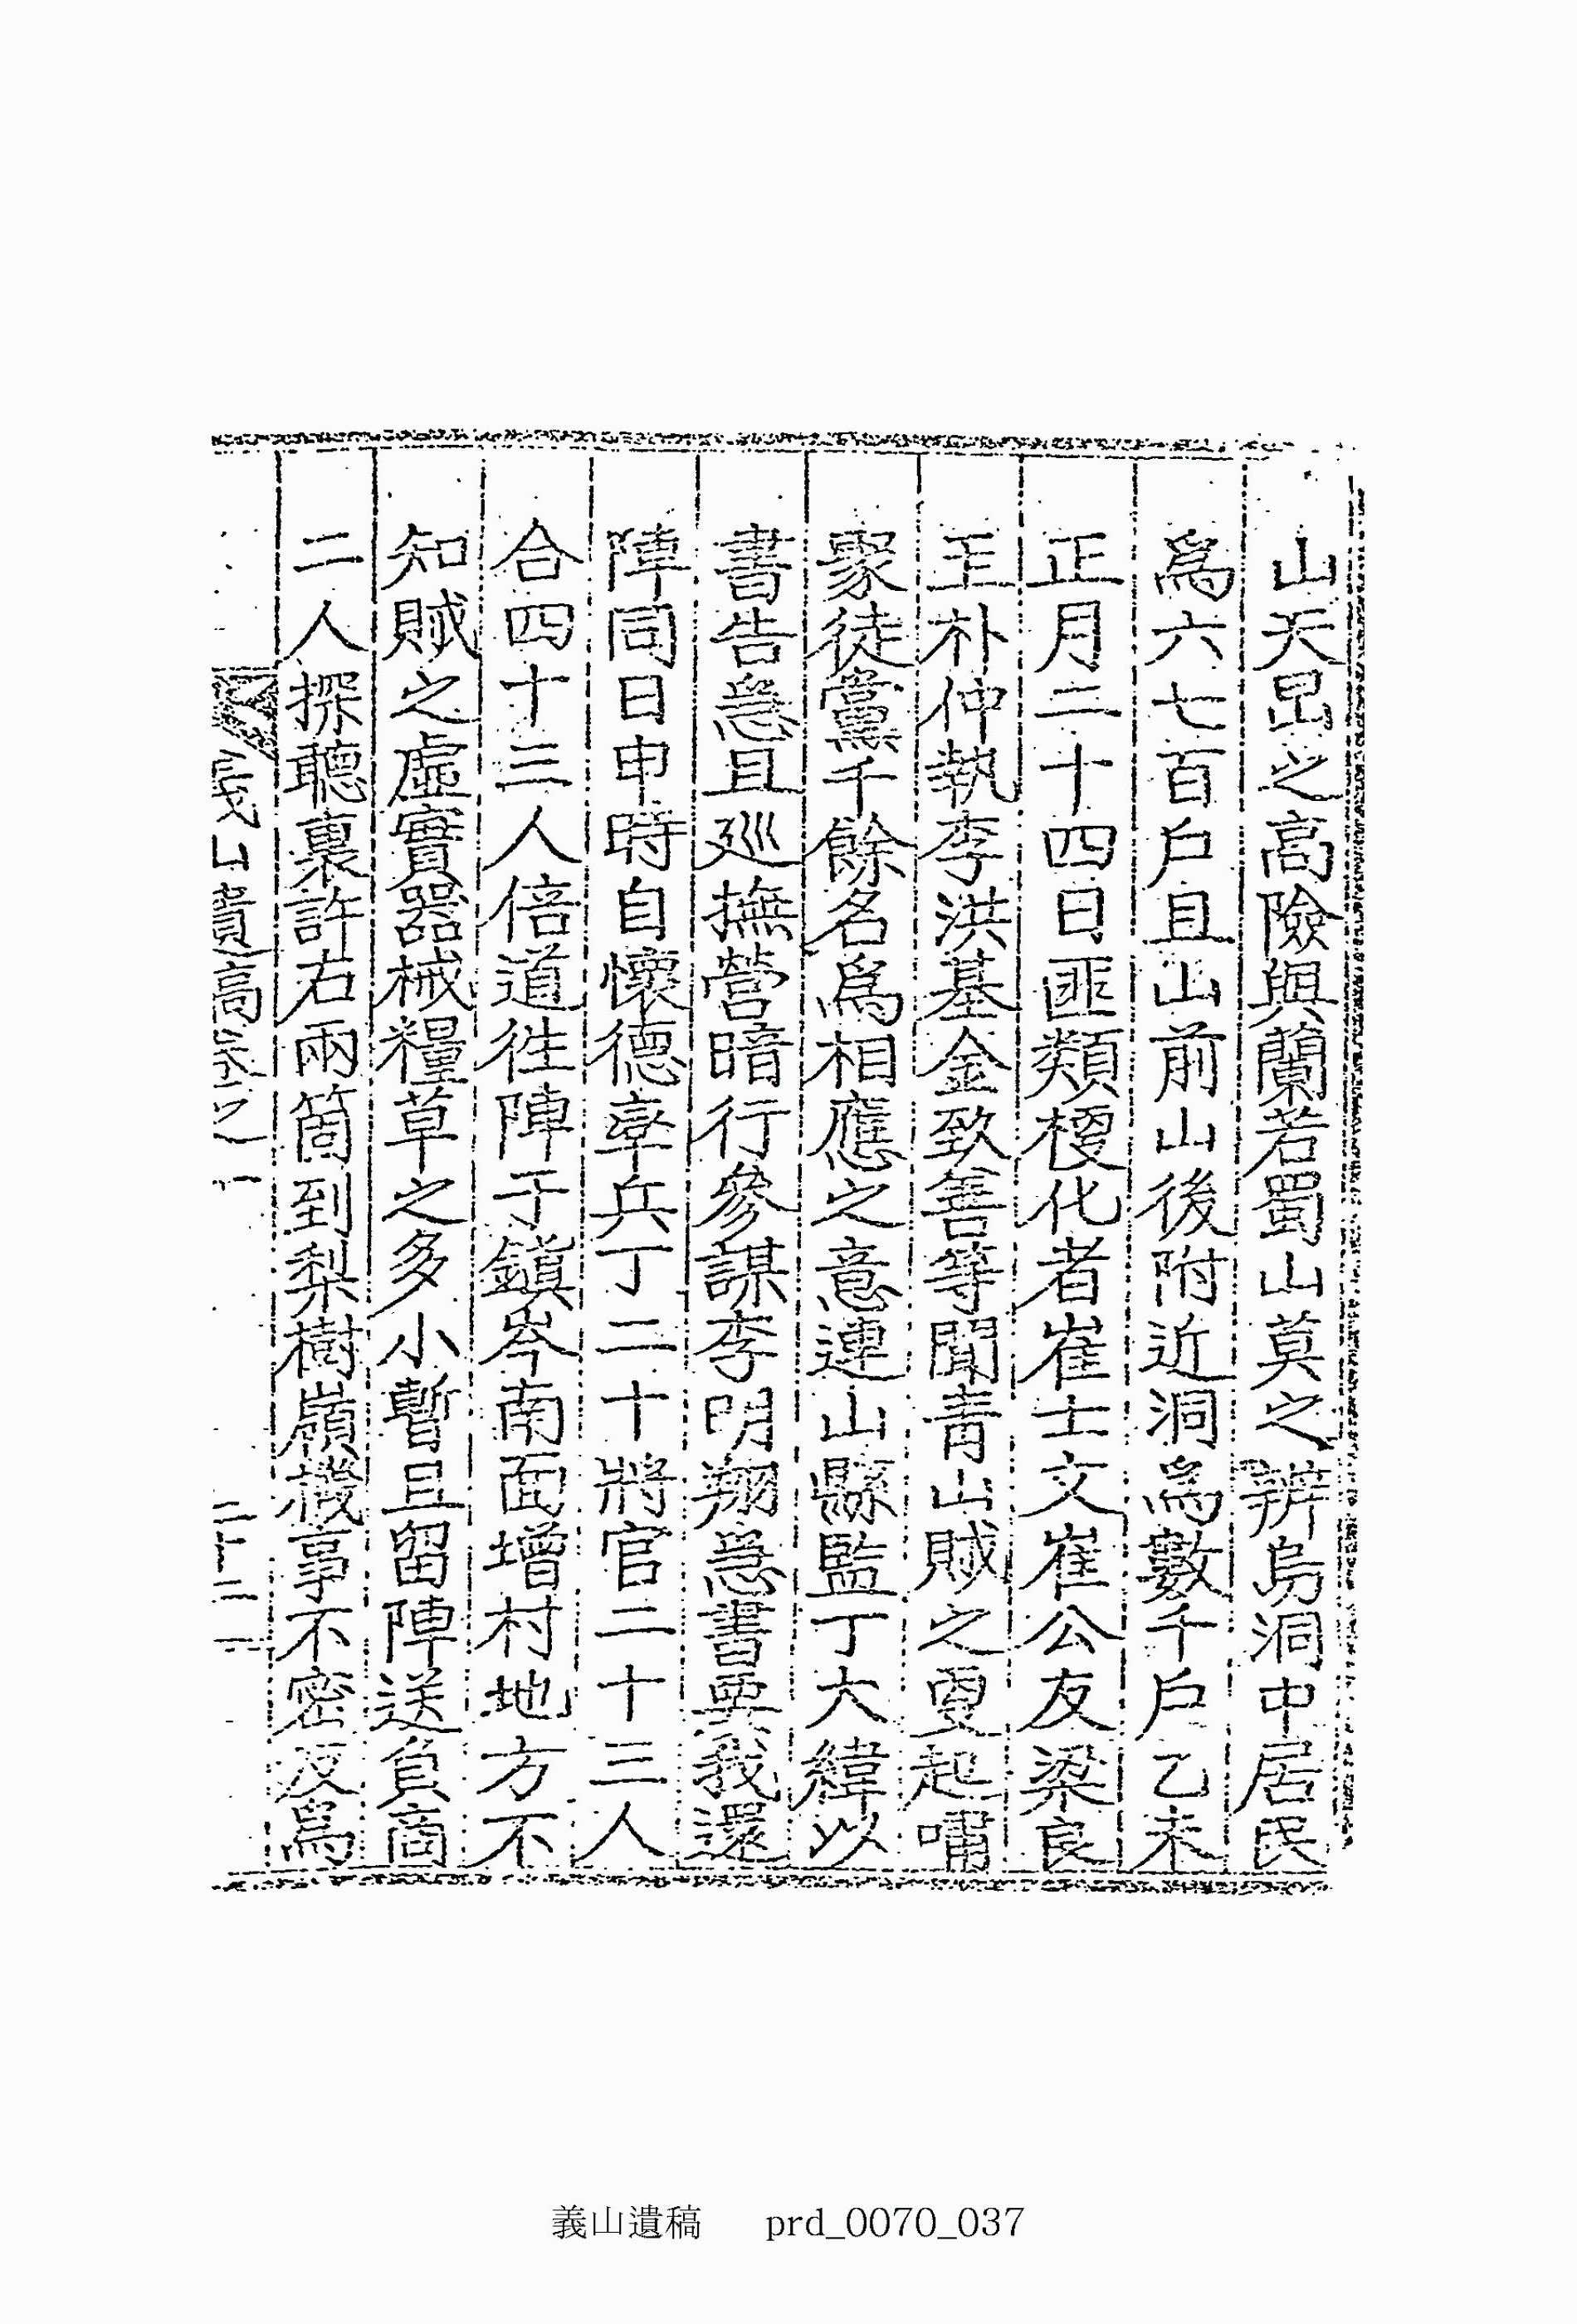 山天呂之高險與蘭若蜀山莫之辨烏洞中居民
爲六七百戶且山前山後附近洞爲數千戶乙未
正月二十四日匪類梗化者崔士文崔公友梁良
王朴仲執李洪基金致善等聞靑山賊之更起嘯
聚徒黨千餘名爲相應之意連山縣監丁大緯以
書告急且巡撫營暗行參謀李明翔急書要我還
陣同日申時自懷德率兵丁二十將官二十三人
合四十三人倍道往陣于鎭岑南面增村地方不
知賊之虛實器械糧草之多小暫且留陣送負商
二人探聽裏許右兩箇到梨樹嶺機事不密反爲
義山遺稿卷之一 二十二
義山遺稿 prd_0070_037